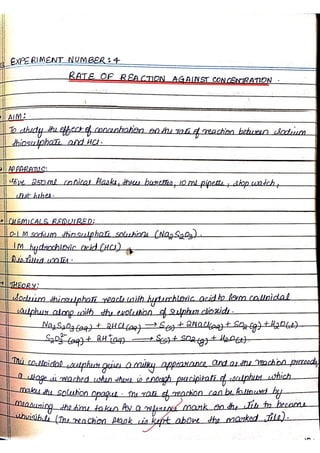 EXPERIMENT NUMBER: 4
RATE OF REACTION AGAINST CONCENTRATION.
AIM:
To study the effect of concentration on the rate of reaction between Sodium
thiosulphate and HCl.
APPARATUS:
Five 250ml conical flasks, three burettes, 10 ml pipette, stop watch,
CHEMICALS REQUIRED:
0.1 M sodium thiosulphate solutions (Na2S2O3).
1M hydrochloric acid (HCl)
Distilled water.
THEORY:
Sodium thiosulphate reacts with hydrochloric acid to form colloidal
sulphur along with the evolution of sulphur dioxide.
Na2S2O3(aq) + 2HCl(aq) → S(s) + 2NaCl(aq) + SO2(g) + H2O(l)
S2O3²⁻(aq) + 2H⁺(aq) → S(s) + SO2(g) + H2O(l)
This colloidal sulphur gives a milky appearance and as the reaction proceeds
a stage is reached when there is enough precipitate of sulphur which
makes the solution opaque. The rate of reaction can be followed by
measuring the time taken for a reference mark on the tile to become
invisible (The reaction flask is kept above the marked tile).